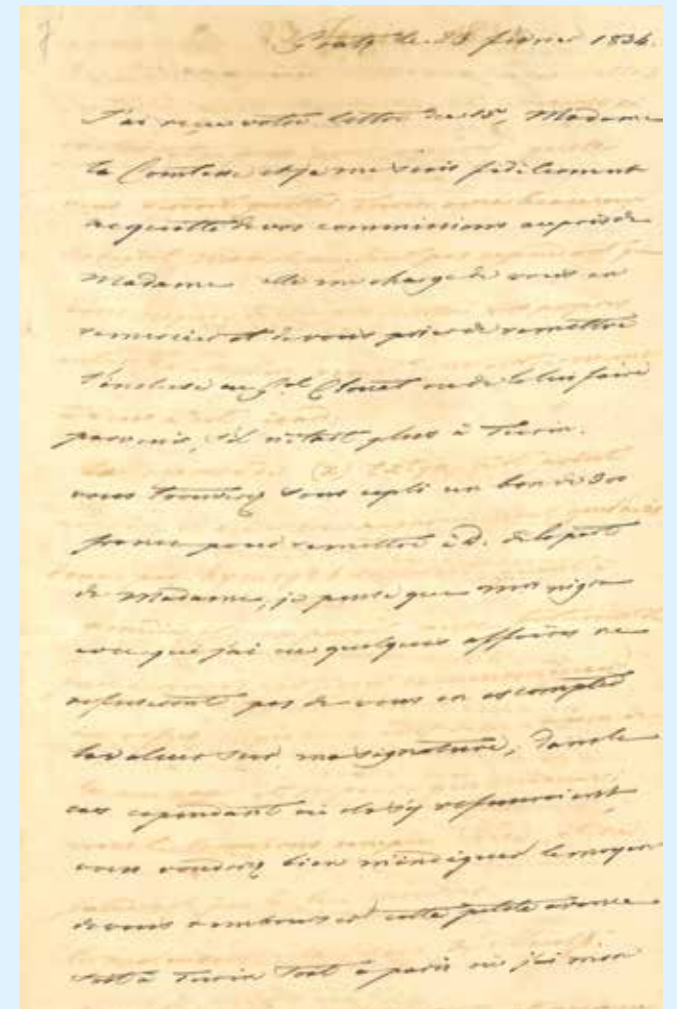 Gratz le 25 février 1834.
J'ai reçu votre lettre du 15, Madame
la Comtesse et je me suis fidèlement
acquitté de vos commissions auprès de
Madame elle me charge de vous en
remercier et de vous prier de remettre
l'incluse au Gal Clouet ou de le lui faire
parvenir, s'il n'était plus à Turin.
vous trouverez sous ce pli un bon de 300
francs pour remettre à D. de la part
de Madame, je pense que mrs nigra
avec qui j'ai eu quelques affaires ne
refuseront pas de vous en escompter
la valeur sur ma signature, dans le
cas cependant où ils s'y refuseroient
vous voudrez bien m'indiquer le moyen
de vous rembourser cette petite avance
soit à Turin soit à paris où j'ai mon